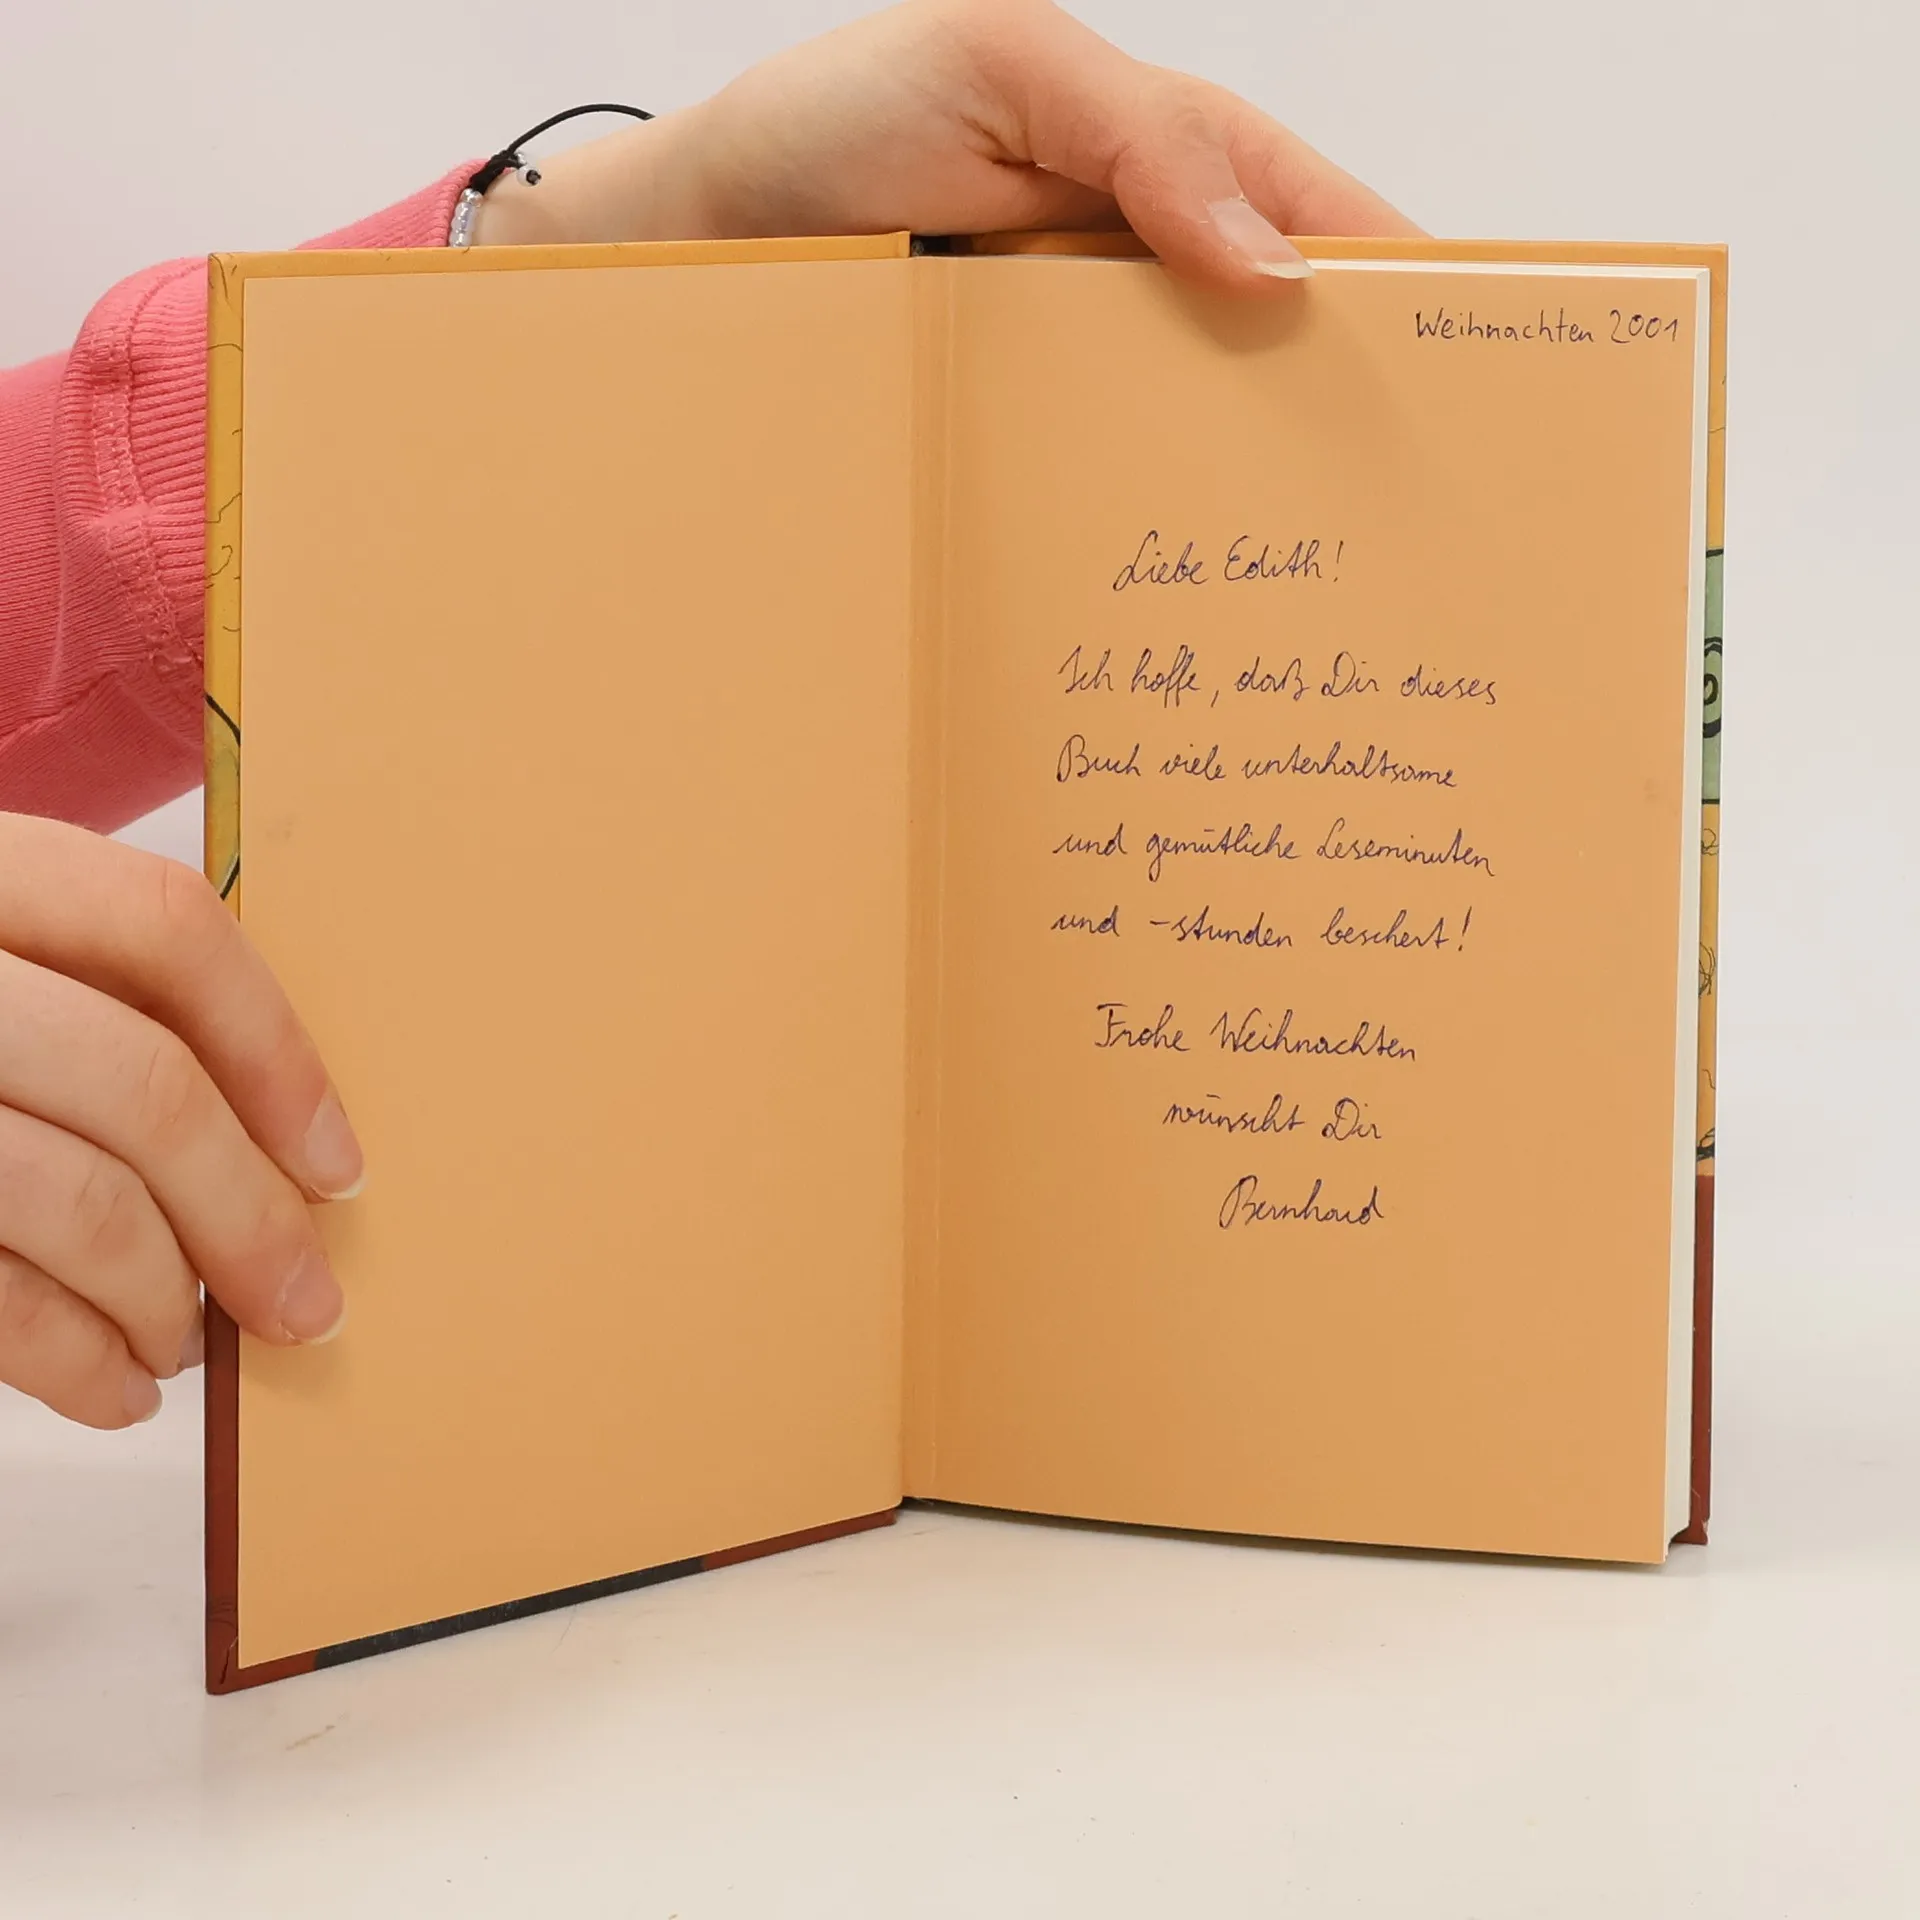 Weihnachten 2001
Liebe Edith!
Ich hoffe, daß Dir dieses
Buch viele unterhaltsame
und gemütliche Leseminuten
und -stunden beschert!
Frohe Weihnachten
wünscht Dir
Bernhard